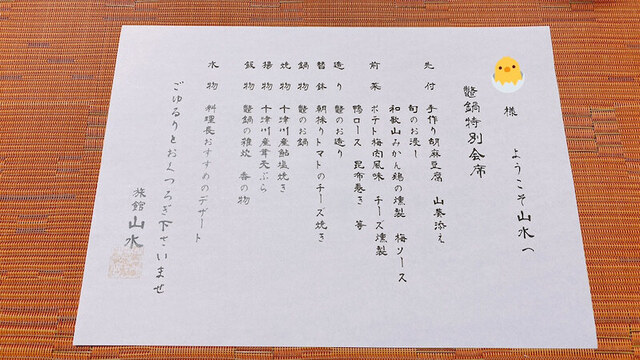 様 ようこそ山水へ
鼈鍋特別会席
先付 手作り胡麻豆腐 山葵添え
旬のお浸し
前菜 和歌山みかん鶏の燻製 梅ソース
ポテト梅肉風味 チーズ燻製
鴨ロース 昆布巻き 等
造り 鼈のお造り
替鉢 朝採りトマトのチーズ焼き
鍋物 鼈のお鍋
焼物 十津川産鮎塩焼き
揚物 十津川産茸天ぷら
飯物 鼈鍋の雑炊 香の物
水物 料理長おすすめのデザート
ごゆるりとおくつろぎ下さいませ
旅館 山水